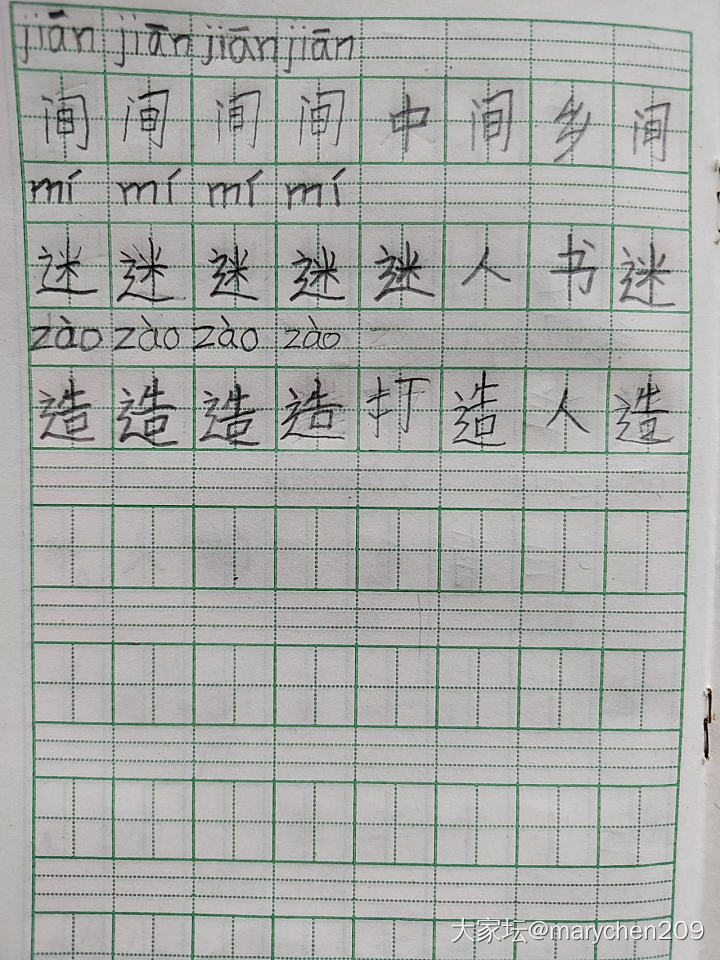 jiān jiān jiān jiān
间 间 间 间 中 间 乡 间
mí mí mí mí
迷 迷 迷 迷 迷 人 书 迷
zào zào zào zào
造 造 造 造 打 造 人 造
大家坛@marychen209